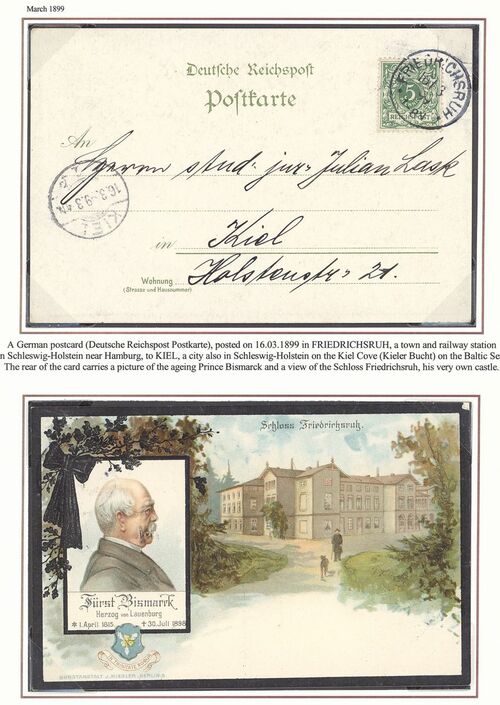 March 1899
Deutsche Reichspost
Postkarte
FRIEDRICHSRUH
5
REICHSPOST
An
Herrn stud. jur. Julian Lask
KIEL
16.3.
in Kiel
Wohnung
(Strasse und Hausnummer)
Holstenstr. 21.
A German postcard (Deutsche Reichspost Postkarte), posted on 16.03.1899 in FRIEDRICHSRUH, a town and railway station
n Schleswig-Holstein near Hamburg, to KIEL, a city also in Schleswig-Holstein on the Kiel Cove (Kieler Bucht) on the Baltic Se
The rear of the card carries a picture of the ageing Prince Bismarck and a view of the Schloss Friedrichsruh, his very own castle.
Schloss Friedrichsruh.
Fürst Bismarck
Herzog von Lauenburg
* 1. April 1815 † 30. Juli 1898
IN TRINITATE ROBUR
KUNSTANSTALT J. MIESLER, BERLIN S.